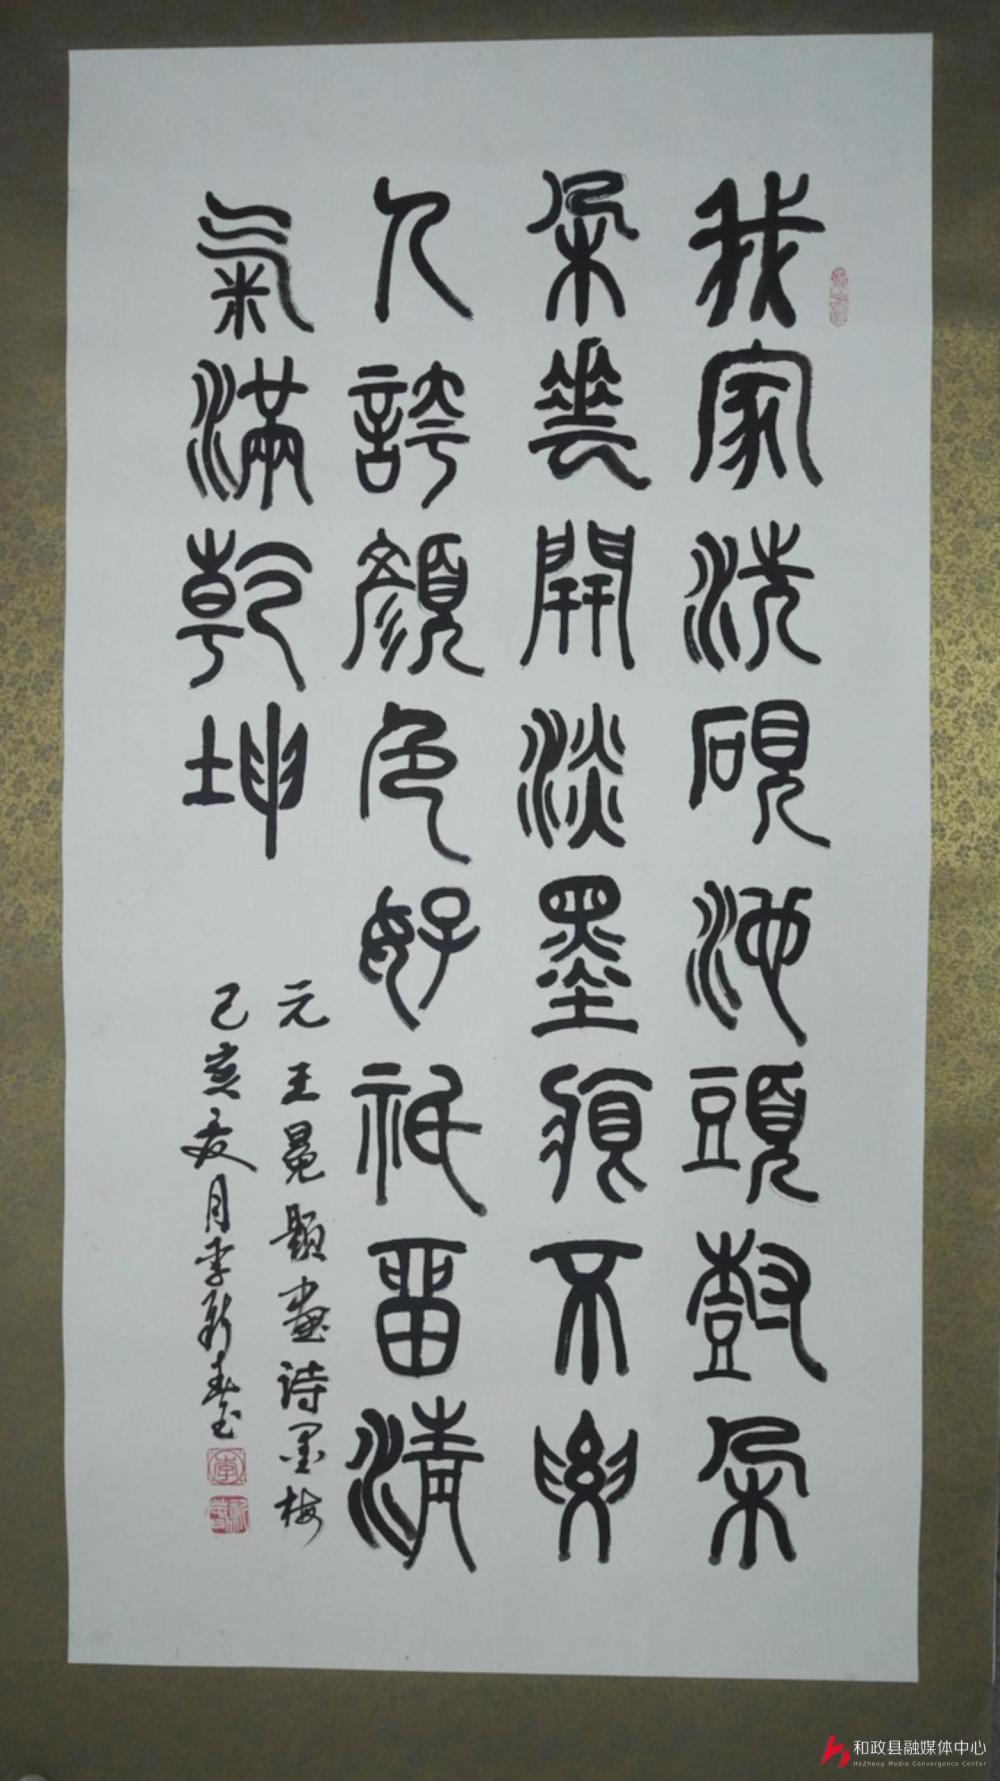 我家洗硯池頭樹朵
朵花開淡墨痕不要
人誇顏色好祇留清
氣滿乾坤
元王冕題畫詩墨梅
己亥夏月李新春书
和政县融媒体中心
HeZheng Media Convergence Center